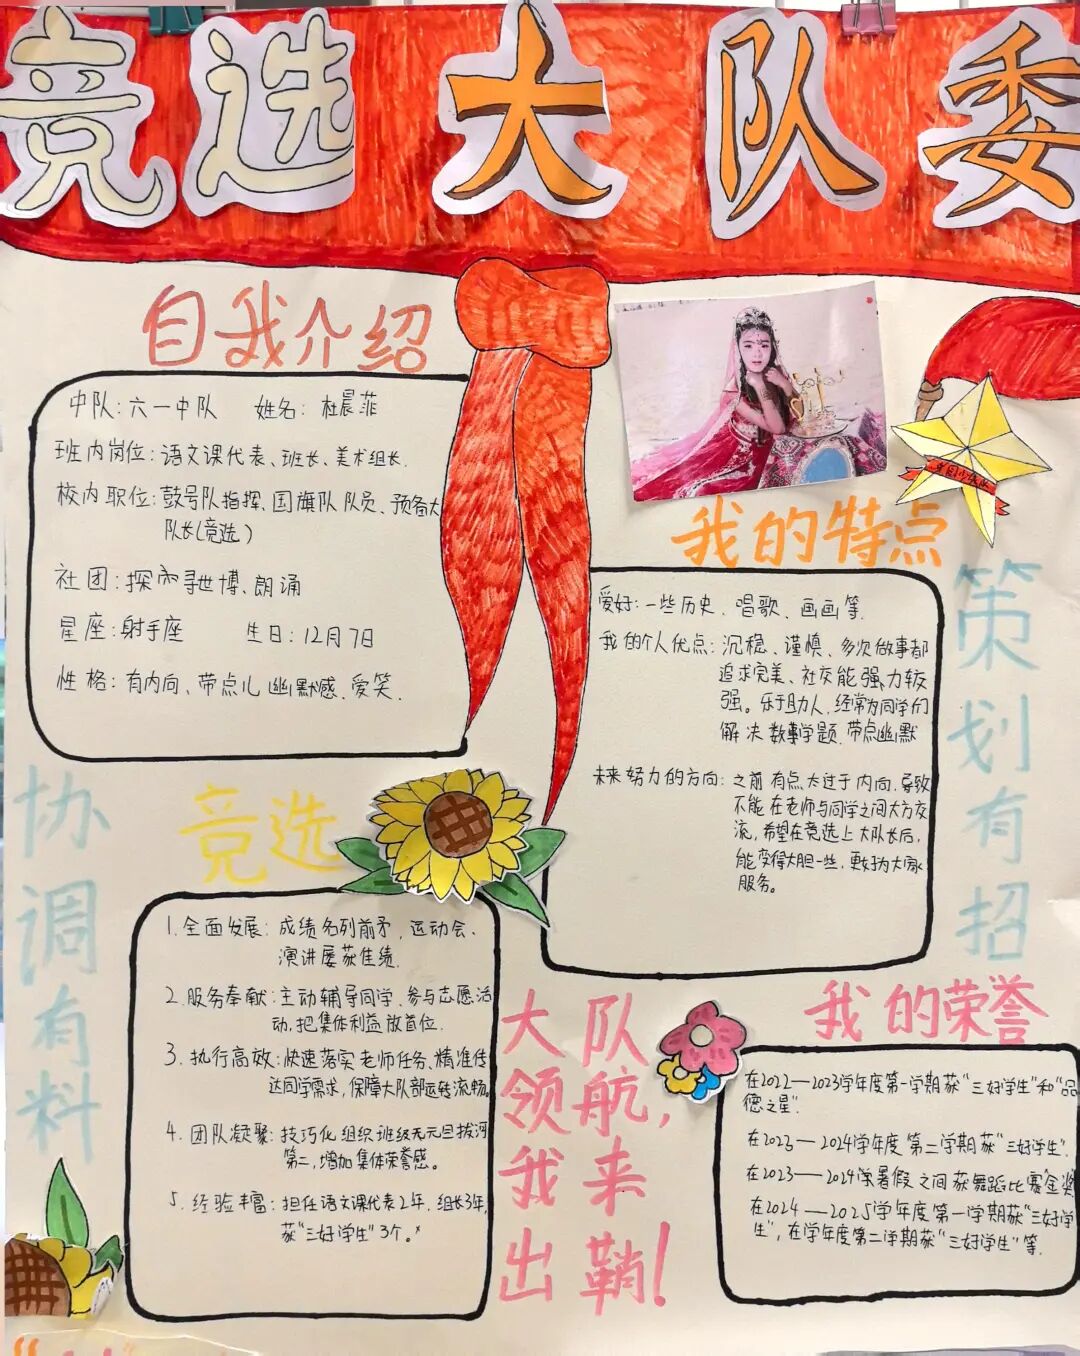 竞选大队委
自我介绍
中队：六一中队 姓名：杜晨菲
班内岗位：语文课代表、班长、美术组长.
校内职位：鼓号队指挥、国旗队队员、预备大
队长(竞选)
社团：探索寻世博、朗诵
星座：射手座 生日：12月7日
性格：有内向、带点儿幽默感、爱笑.
我的特点
爱好：一些历史、唱歌、画画等.
我的个人优点：沉稳、谨慎、多次做事都
追求完美、社交能强,力较
强。乐于助人，经常为同学们
解决数学题、带点幽默
未来努力的方向：之前有点太过于内向，导致
不能在老师与同学之间大方交
流，希望在竞选上大队长后，
能变得大胆一些，更好为大家
服务。
策划有招
协调有料
竞选
1.全面发展：成绩名列前矛，运动会、
演讲屡获佳绩.
2.服务奉献：主动辅导同学、参与志愿活
动，把集体利益放首位.
3.执行高效：快速落实老师任务、精准传
达同学需求，保障大队部运转流畅。
4.团队凝聚：技巧化组织班级元旦拔河
第二，增加集体荣誉感。
5.经验丰富：担任语文课代表2年，组长3年，
获“三好学生”3个。
大队
领航，
我来
出鞘！
我的荣誉
在2022—2023学年度第一学期获“三好学生”和“品
德之星”.
在2023—2024学年度第二学期获“三好学生”.
在2023—2024学暑假之间获舞蹈比赛金奖
在2024—2025学年度第一学期获“三好学
生”，在学年度第二学期获“三好学生”等.